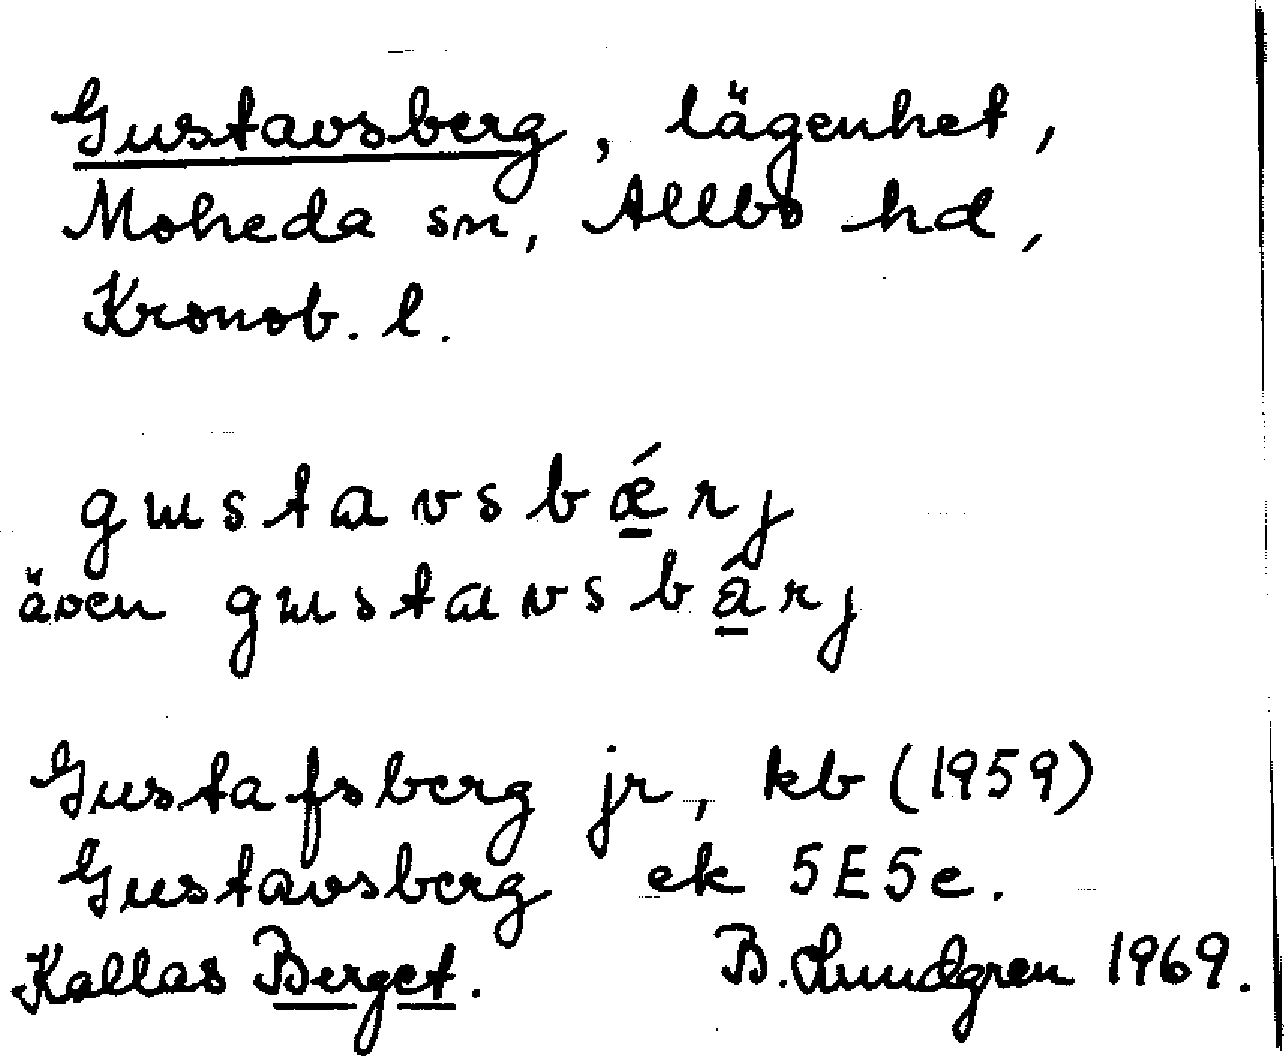 Gustavsberg, lägenhet,
Moheda sn, Allbo hd,
Kronob. l.
gɯstɑvsbǽ̠rj
även gɯstɑvsbá̠rj
Gustafsberg jr, kb (1959)
Gustavsberg ek 5E5e.
Kallas Berget. B. Lundgren 1969.